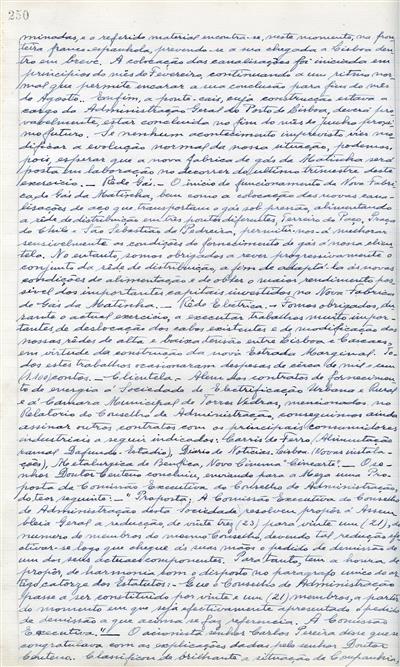 250
minadas, e o referido material encontra-se, neste momento, na fron-
teira franco-espanhola, prevendo-se a sua chegada a Lisboa den-
tro em breve. A colocação das canalisações foi iniciada em
principios do mês de Fevereiro, continuando a um ritmo nor-
mal que permite encarar a sua conclusão para fins do mês
de Agosto. Emfim, a ponte-cais, cuja construcção estava a
cargo da Administração Geral do Porto de Lisboa, deverá, pro-
vavelmente, estar concluida no fim do mês de Junho proxi-
mo futuro. Se nenhum acontecimento imprevisto vier mo-
dificar a evolução normal da nossa situação, podemos,
pois, esperar que a nova fabrica de gás da Matinha será
posta em laboração no decorrer do ultimo trimestre deste
exercicio. — Rêde Gás. — O inicio do funcionamento da Nova Fabri-
ca de Gás da Matinha, bem como a colocação das novas cana-
lisações de aço que transportam o gás sob pressão, alimentando
a rêde de distribuição em três pontos diferentes, Terreiro do Paço, Praça
do Chile e São Sebastião da Pedreira, permitir-nos-á melhorar
sensivelmente as condições do fornecimento de gás á nossa clien-
tela. No entanto, somos obrigados a rever progressivamente o
conjunto da rêde de distribuição, a fim de adaptá-la ás novas
condições de alimentação e de obter o maior rendimento pos-
sivel dos importantes capitais investidos na Nova Fabrica
de Gás da Matinha. — Rêde Eletrica. — Fomos obrigados, du-
rante o actual exercicio, a executar trabalhos muito impor-
tantes de deslocação dos cabos existentes e de modificação das
nossas rêdes de alta e baixa tensão entre Lisboa e Cascaes,
em virtude da construção da nova Estrada Marginal. To-
dos estes trabalhos ocasionaram despesas de cêrca de mil e cem
(1.100) contos. — Clientela. — Alem dos contratos de fornecimen-
to de energia á Sociedade de Electrificação Urbana e Rural
e á Camara Municipal de Torres Vedras, mencionados no
Relatorio do Conselho de Administração, conseguimos ainda
assinar outros contratos com os principais consumidores
industriais a seguir indicados: Carris de Ferro (Alimentação
ramal Dafundo-Estadio), Diario de Noticias, Lisboa (Novas instala-
ções), Metalurgica de Benfica, Novo Cinema Cinearte. — O se-
nhor Doutor Centeno concluiu, enviando para a Meza uma Pro-
posta da Comissão Executiva do Conselho de Administração,
do teor seguinte: — "Proposta: A Comissão Executiva do Conselho
de Administração desta Sociedade resolveu propôr á Assem-
bleia Geral a reducção, de vinte três (23) para vinte um (21), do
numero de membros do mesmo Conselho, devendo tal redução efe-
ctivar-se logo que chegue ás suas mãos o pedido de demissão de
um dos seus actuais componentes. Portanto, tem a honra de
propôr, de harmonia com o disposto no paragrafo unico do ar-
tigo catorze dos Estatutos: — Que o Conselho de Administração
passe a ser constituido por vinte e um (21) membros, a partir
do momento em que seja efectivamente apresentado o pedido
de demissão a que acima se faz referencia. A Comissão
Executiva." — O acionista senhor Carlos Pereira disse que se
congratulava com as explicações dadas pelo senhor Doutor
Centeno. Classificou de brilhante a situação da Companhia,